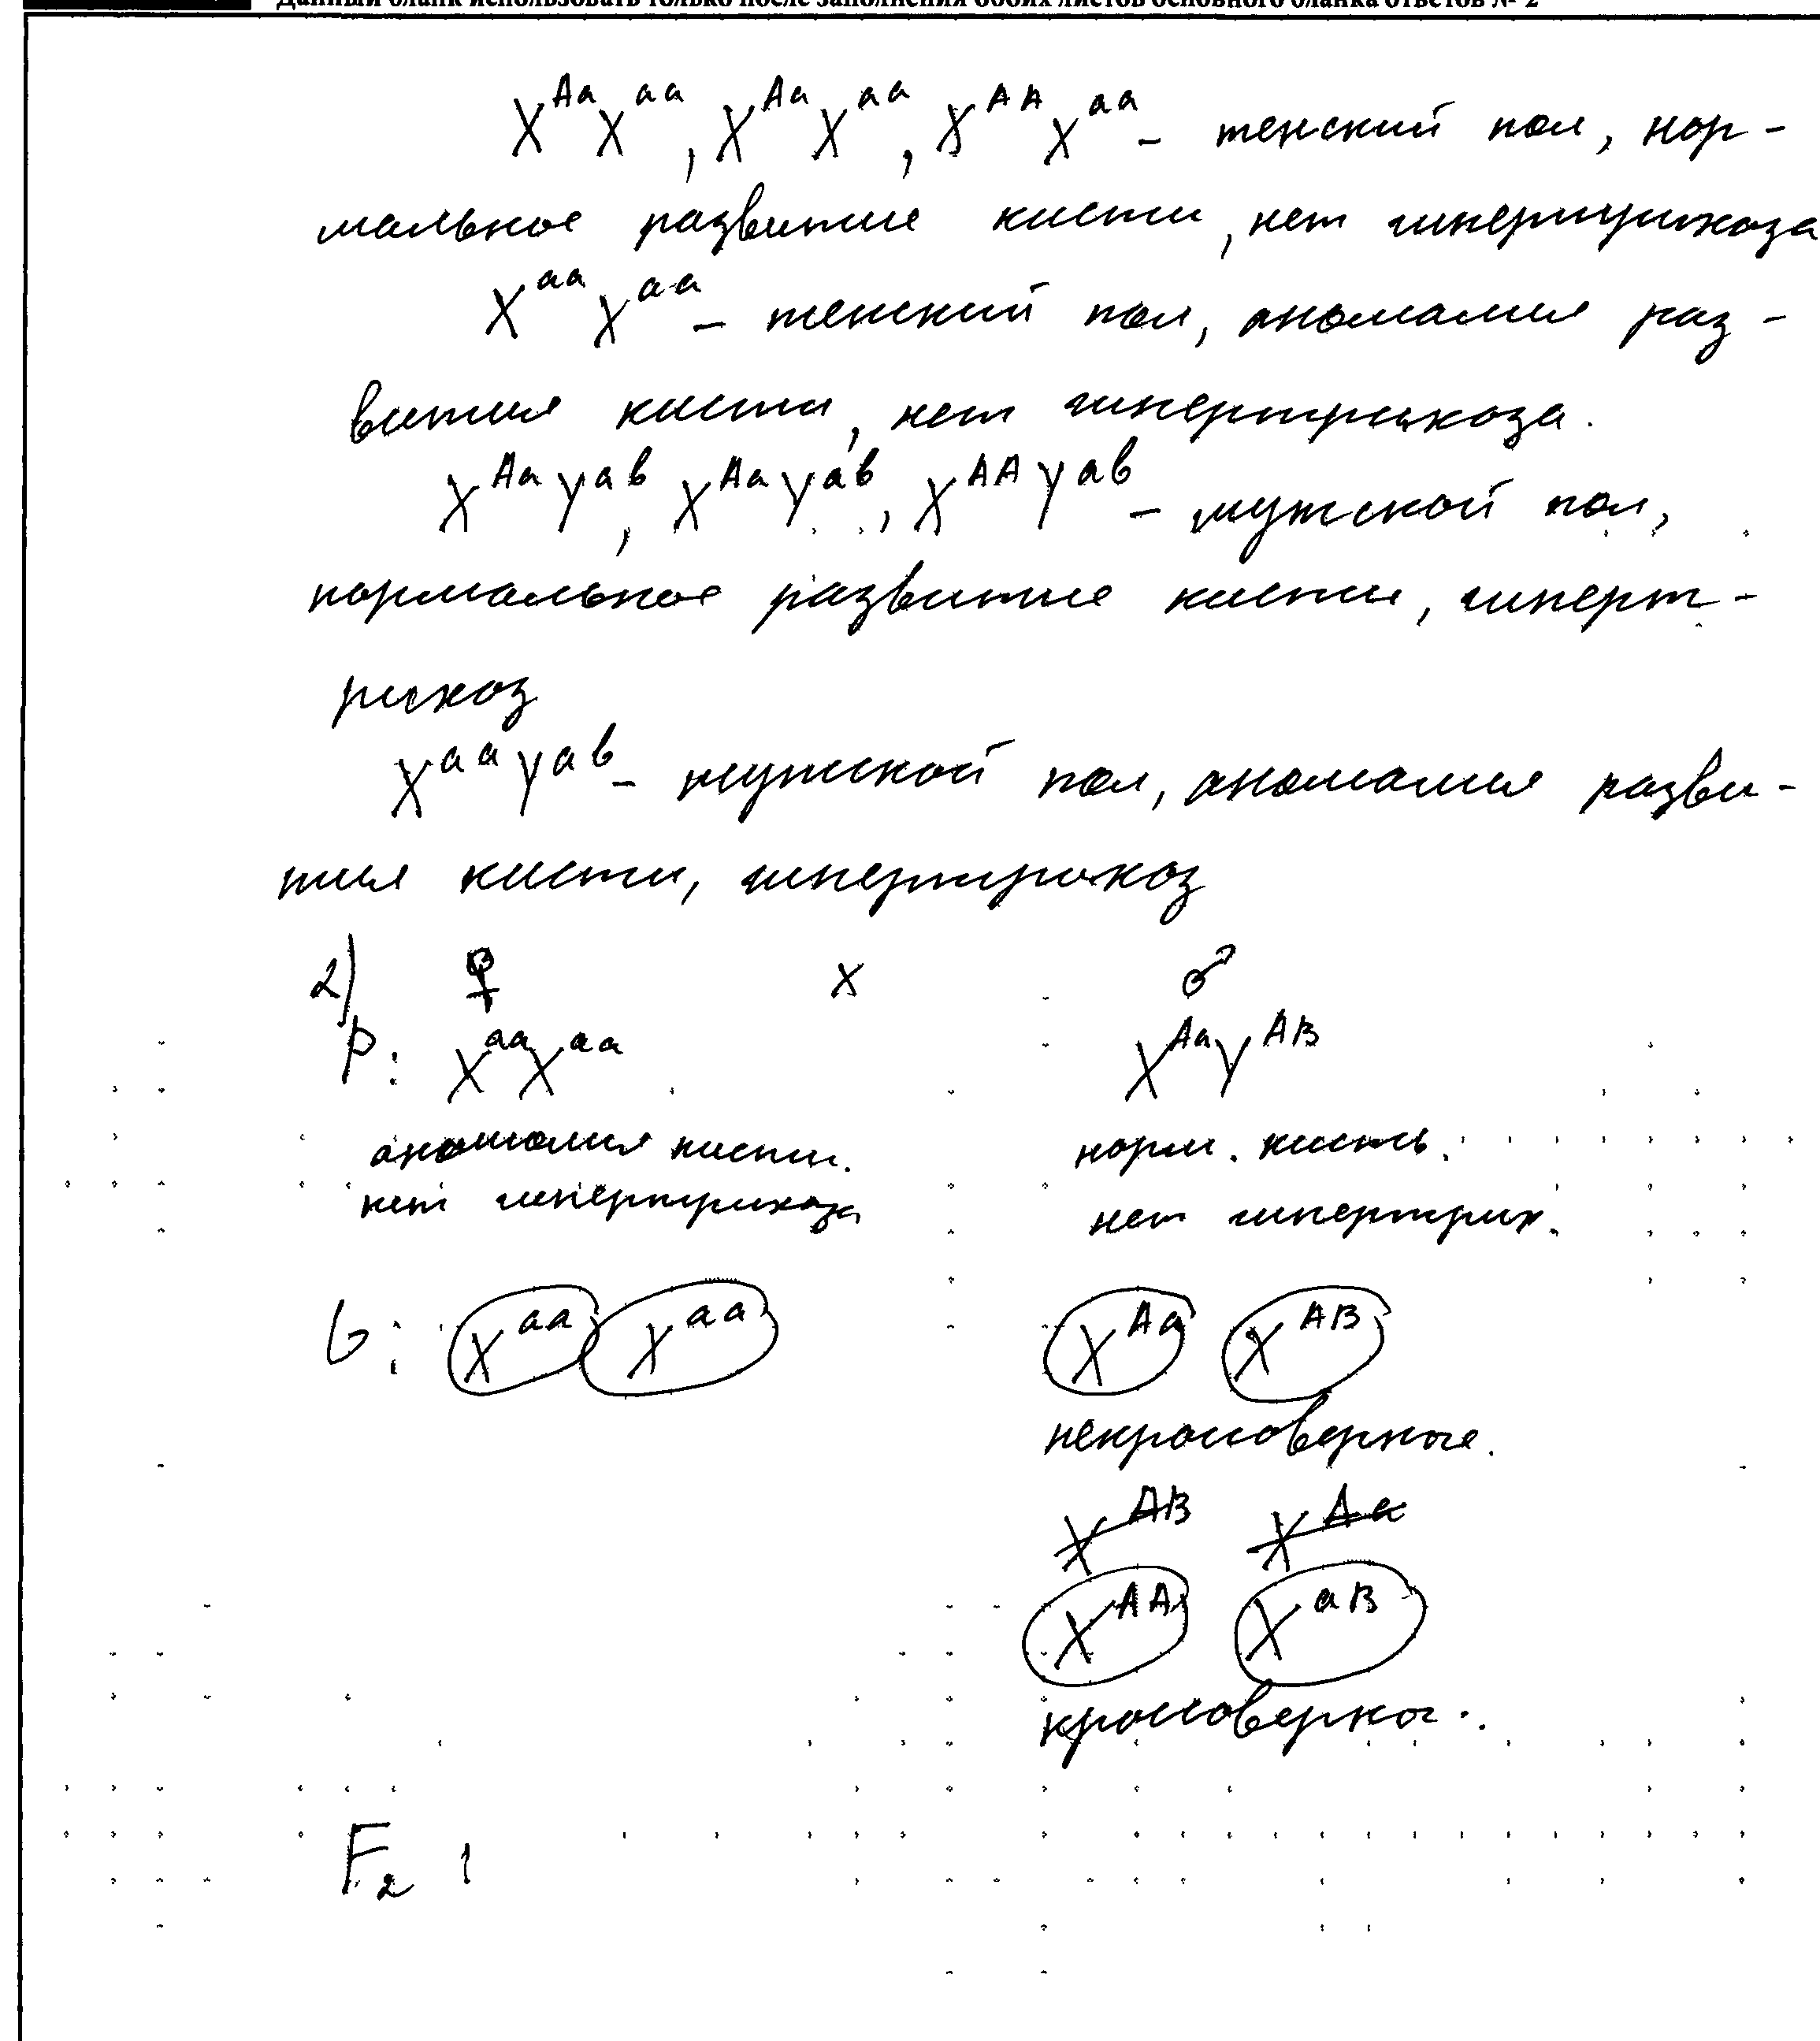 Данный бланк использовать только после заполнения обоих листов основного бланка ответов № 2
X^Aa X^aa, X^Aa X^aa, X^AA X^aa - женский пол, нор-
мальное развитие кисти, нет гипертрихоза
X^aa X^aa - женский пол, аномалия раз-
вития кисти, нет гипертрихоза.
X^Aa Y^ab, X^Aa Y^ab, X^AA Y^ab - мужской пол,
нормальное развитие кисти, гиперт-
рихоз
X^aa Y^ab - мужской пол, аномалия разви-
тия кисти, гипертрихоз
2) ♀ x ♂
P: X^aa X^aa X^Aa Y^AB
аномалия кисти. норм. кисть.
нет гипертрихоза нет гипертрих.
G: X^aa X^aa X^Aa X^AB
некроссоверные.
X^AB X^Aa
X^AA X^aB
кроссоверног.
F2 :